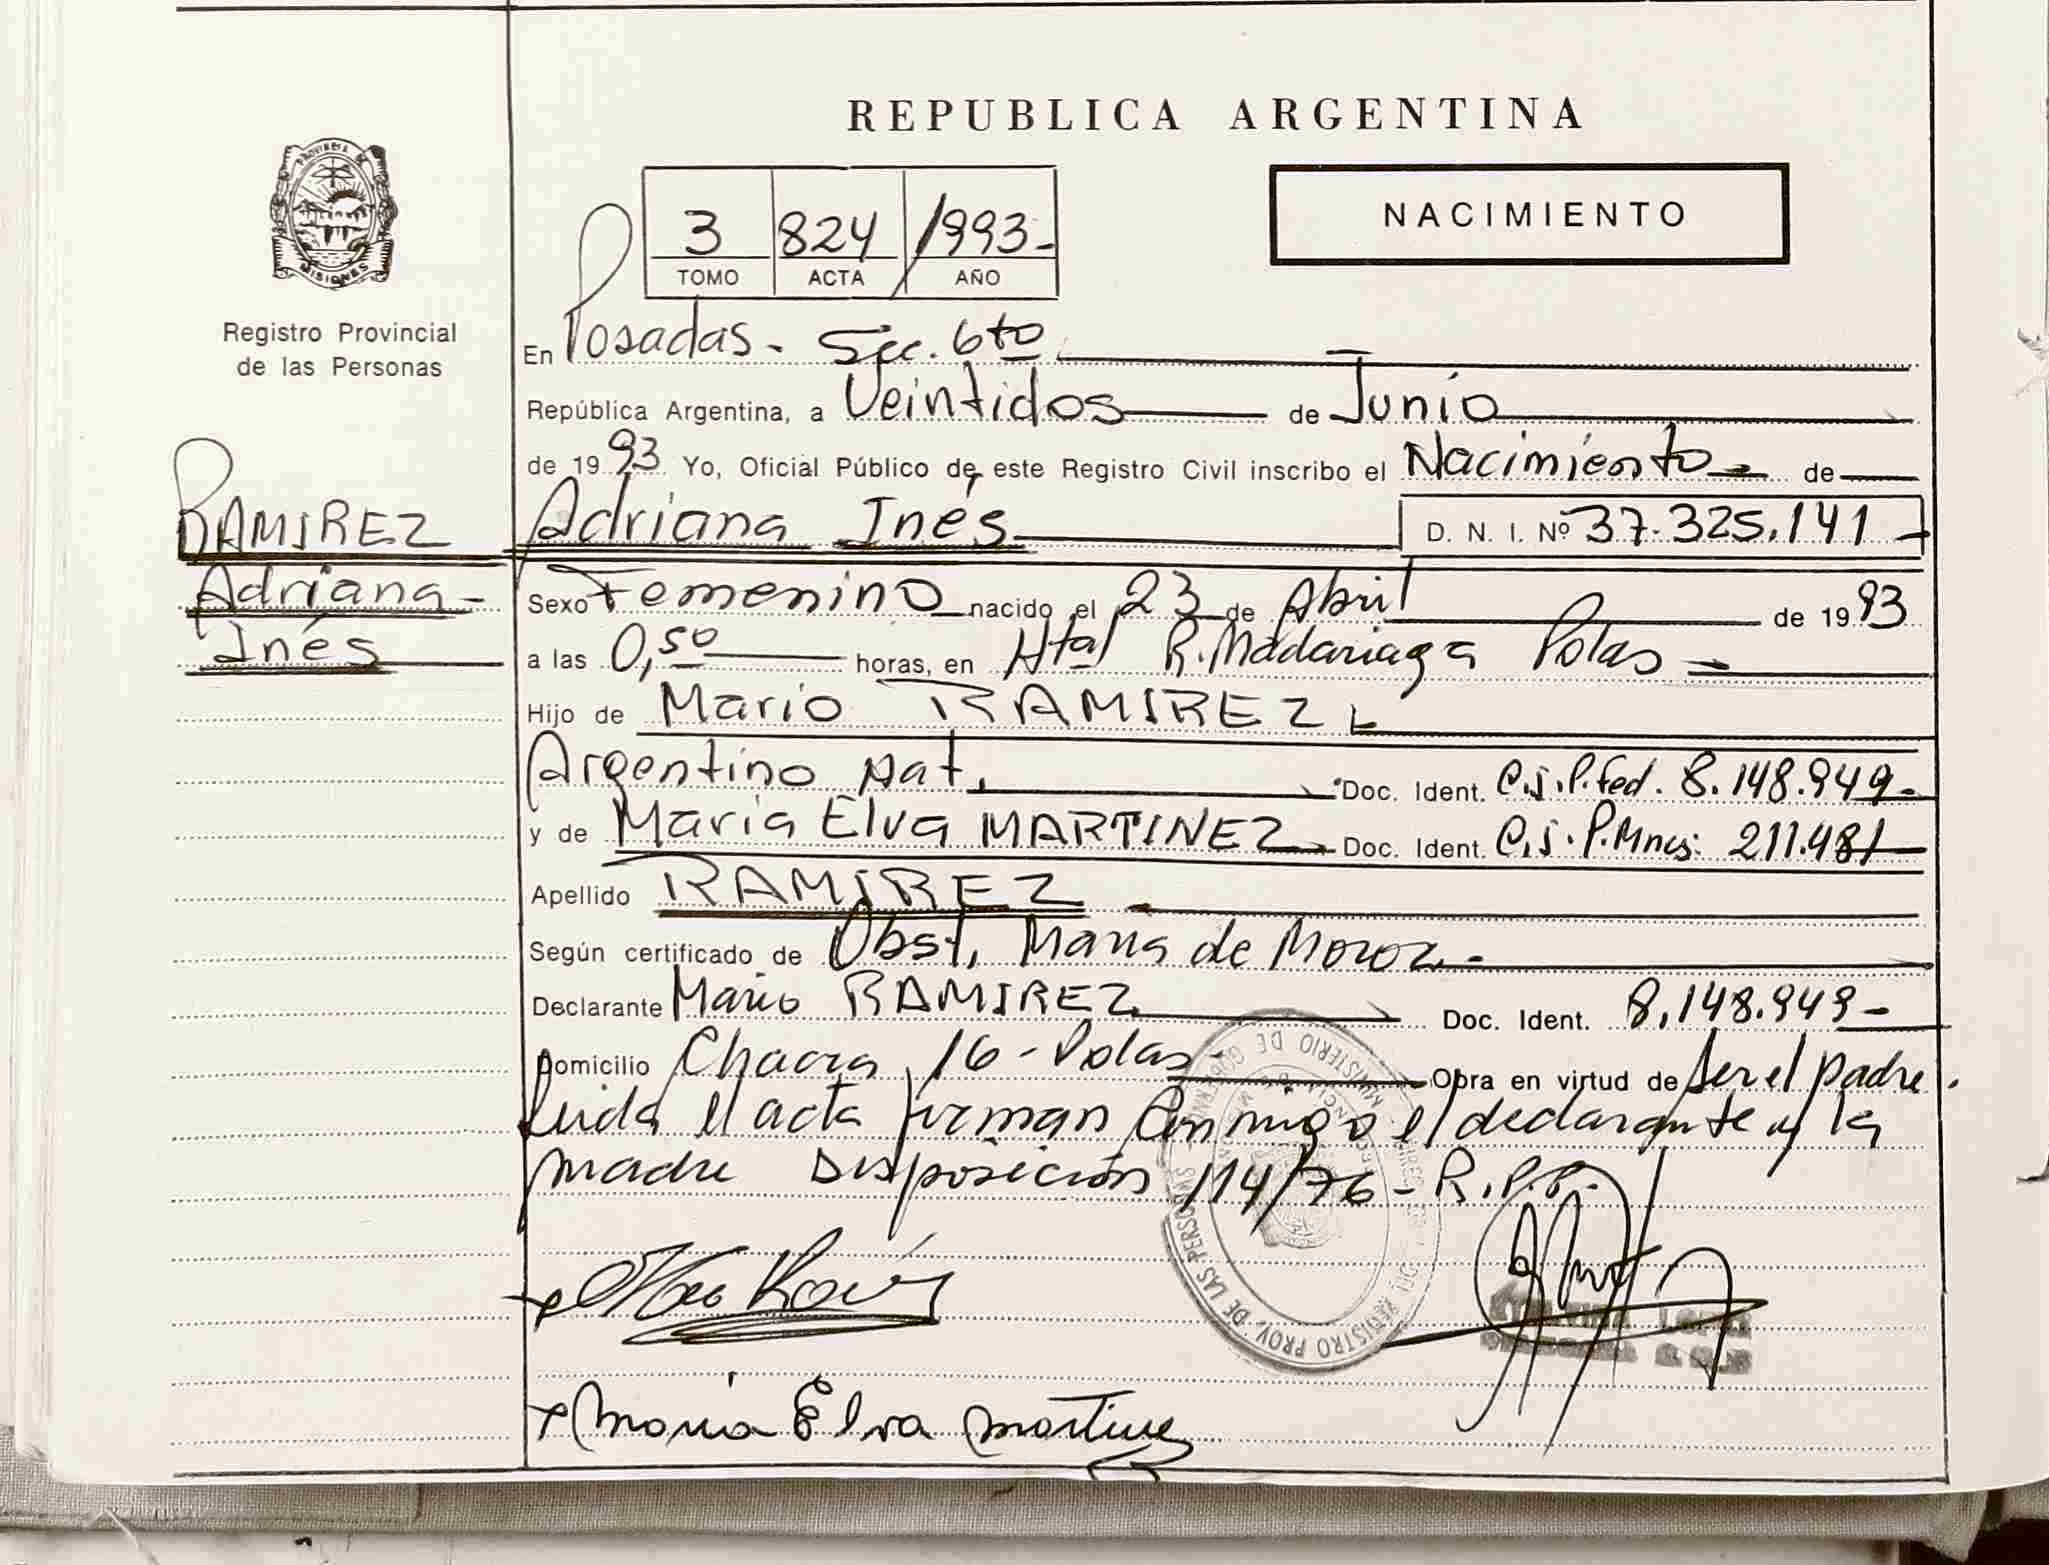 REPUBLICA ARGENTINA
NACIMIENTO
3 824 1993-
TOMO ACTA AÑO
PROVINCIA DE
MISIONES
Registro Provincial
de las Personas
RAMIREZ
Adriana -
Inés
En Posadas - Sec. 6to
República Argentina, a Veintidos de Junio
de 1993 Yo, Oficial Público de este Registro Civil inscribo el Nacimiento de
Adriana Inés D. N. I. Nº 37.325.141 -
Sexo Femenino nacido el 23 de Abril de 1993
a las 0,50 horas, en Htal R. Madariaga Pdas -
Hijo de Mario RAMIREZ
Argentino Nat. Doc. Ident. C.I.P.Fed. 8.148.949-
y de Maria Elva MARTINEZ Doc. Ident. C.I.P.Mnes: 211.481
Apellido RAMIREZ
Según certificado de Obst. Maria de Moroz -
Declarante Mario RAMIREZ Doc. Ident. 8.148.949-
Domicilio Chacra 16 - Pdas - Obra en virtud de ser el padre.
Leida el acta firman conmigo el declarante y la
madre Disposición 114/76 - R.P.P.
MINISTERIO DE GOBIERNO
REGISTRO PROV. DE LAS PERSONAS
Maria Elva Martinez